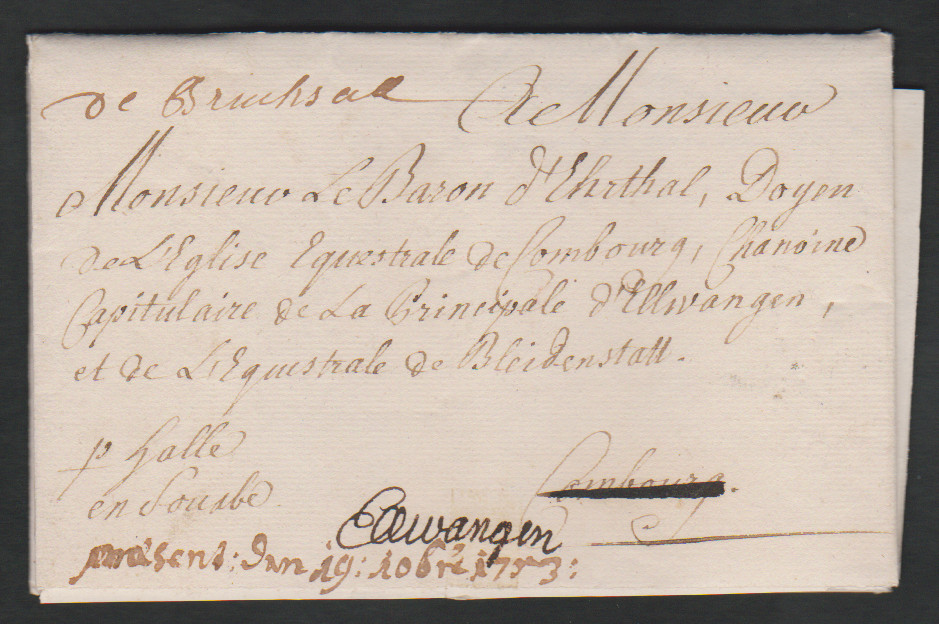 de Bruchsal
A Monsieur
Monsieur Le Baron d'Ehrthal, Doyen
de L'Eglise Equestrale de Combourg, Chanoine
Capitulaire de La Principale d'Ellwangen,
et de L'Equestrale de Bleidenstatt.
p Halle
en Souabe
Combourg.
Ellwangen
præsent: den 19: 10bre 1753: